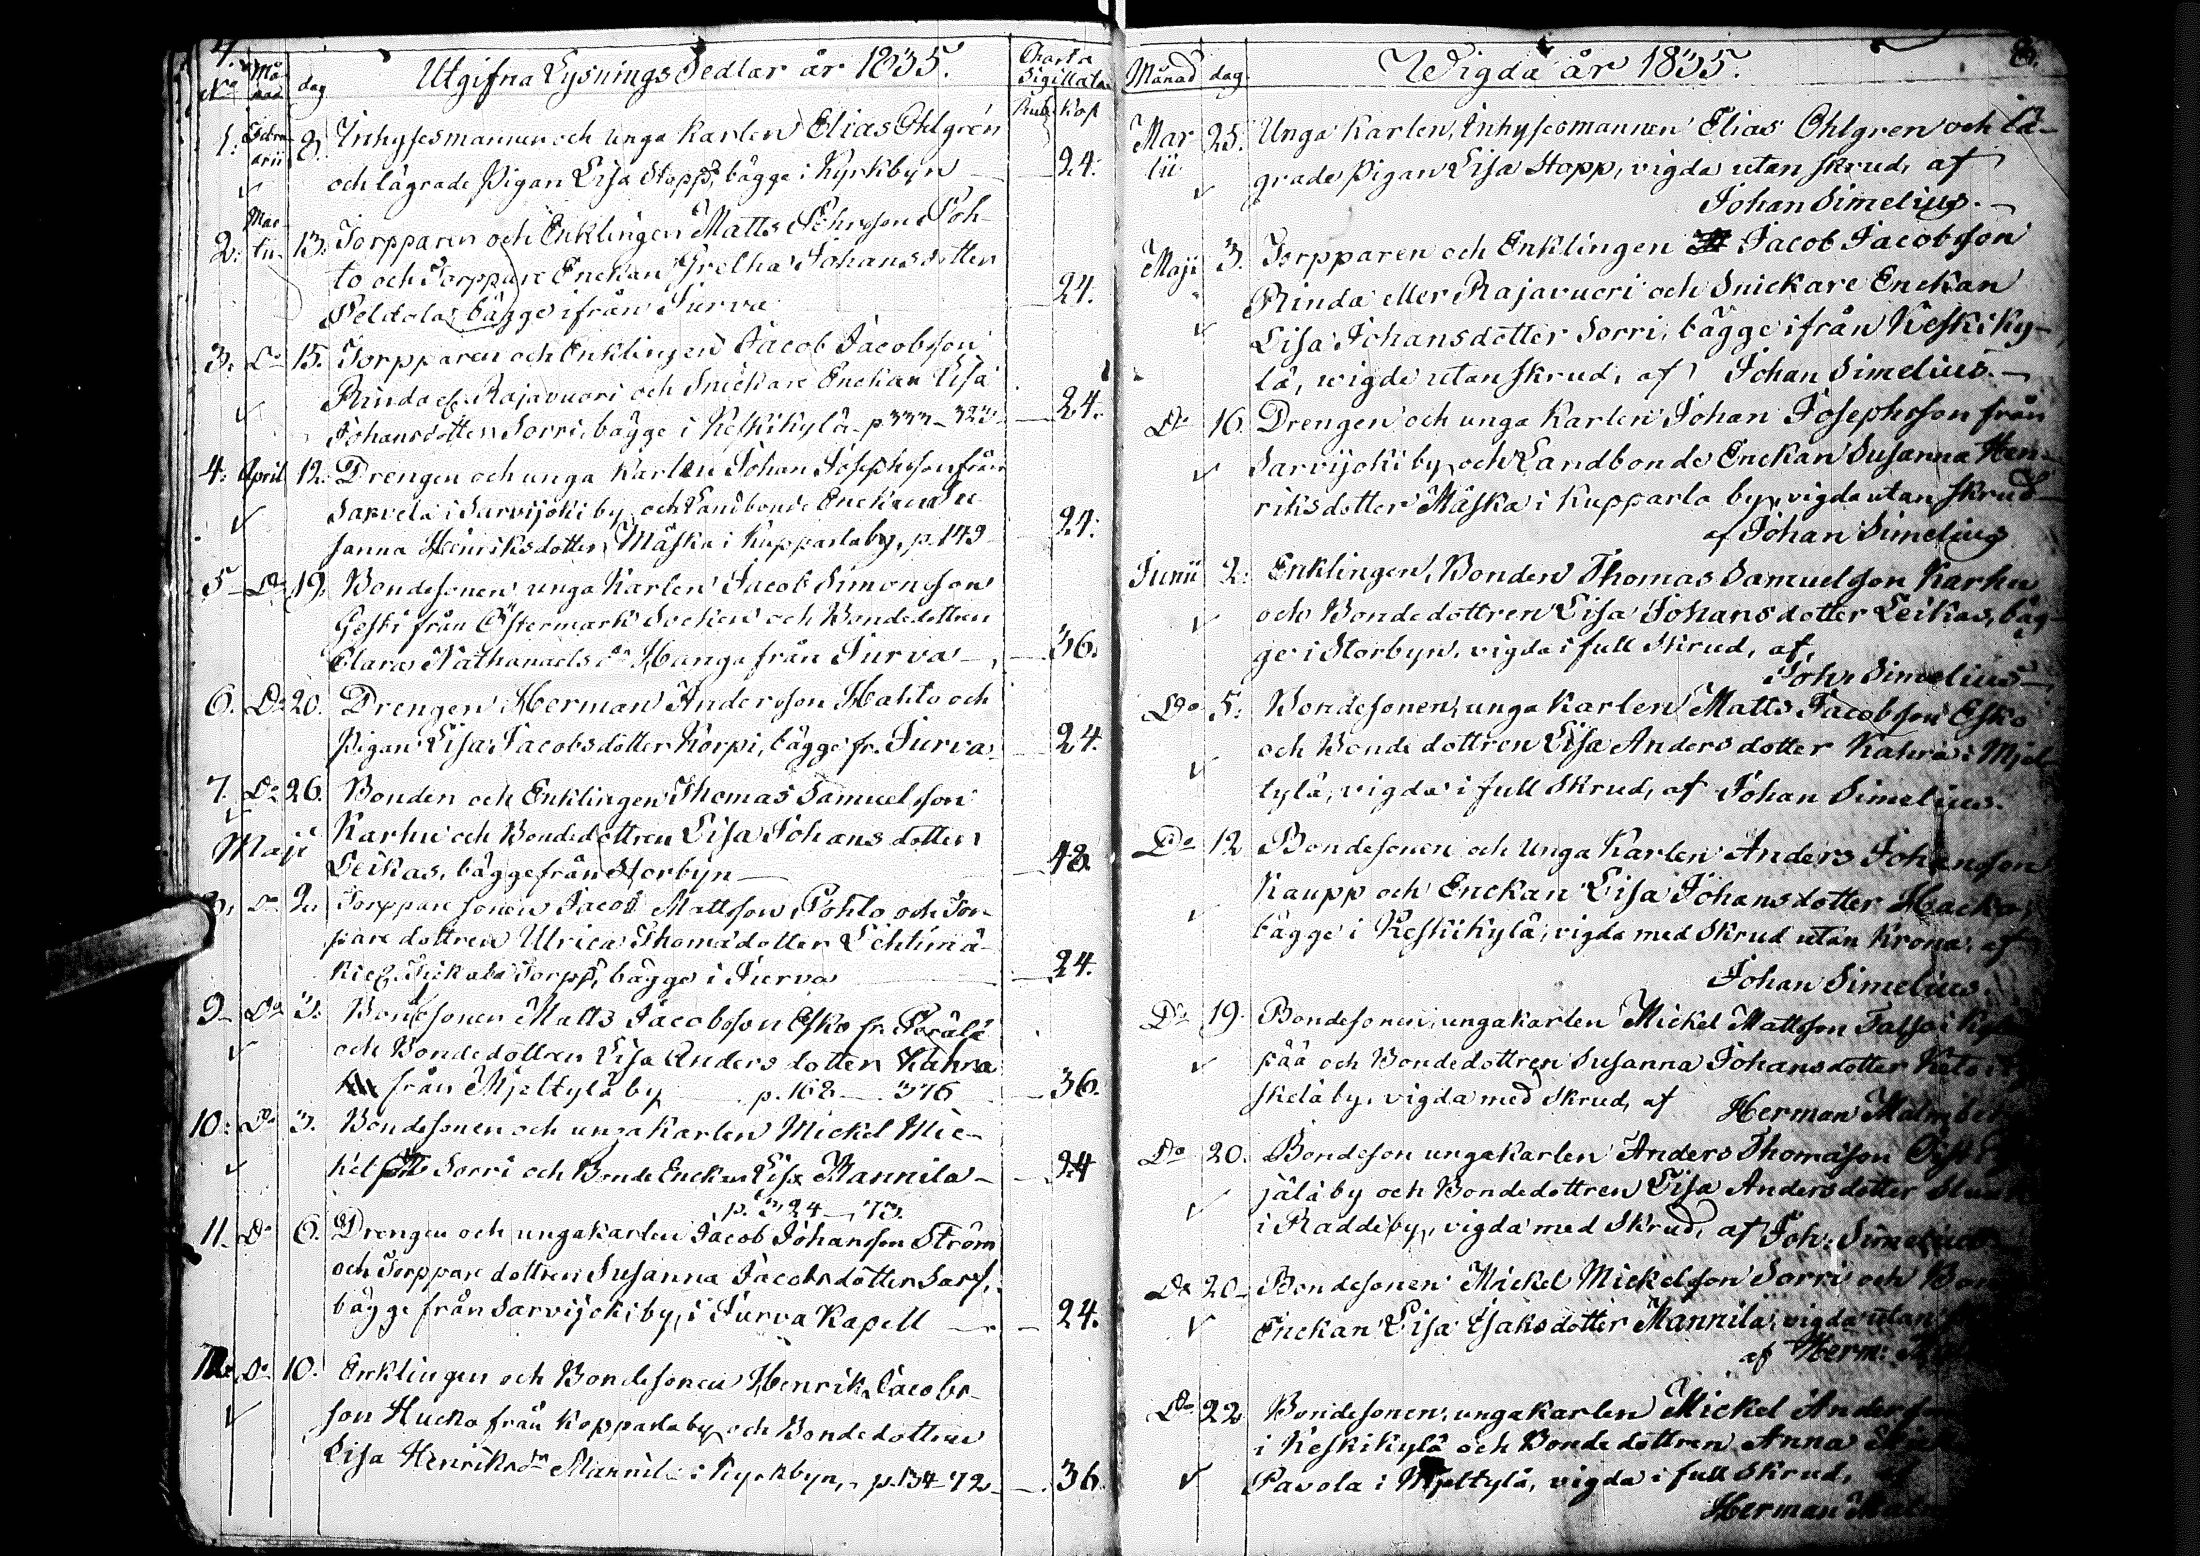 4.
No Må- nad dag Utgifna Lysnings Sedlar år 1835. Charta Sigillata
Rub. Kop
1. Febru- arii 8. Inhysesmannen och unga karlen Elias Ohlgrén
och lägrade Pigan Lisa Stopp, bägge i Kyrkbyn 24.
2. Mar- tii 13. Torpparen och Enklingen Matts Pehrsson Poh-
to och Torppare Enckan Gretha Johansdotter
Peldola, bägge ifrån Jurva 24.
3. Do 15. Torpparen och Enklingen Jacob Jacobsson
Rinda el. Rajavuori och Snickare Enckan Lisa
Johansdotter Sorri, bägge i Keskikylä p 333-323 24.
4. April 12. Drengen och unga Karlen Johan Josephsson från
Sarvela i Sarvijoki by och Landbonde Enckan Su
sanna Henriksdotter Måska i Kupparla by, p. 149 24.
5 Do 19. Bondesonen unga Karlen Jacob Simonsson
Geski från Östermark Socken och Bondedottren
Clara Nathanaels dr Hanga från Jurva 36.
6. Do 20. Drengen Herman Andersson Hahto och
Pigan Lisa Jacobsdotter Korpi, bägge fr. Jurva 24.
7. Do 26. Bonden och Enklingen Thomas Samuelsson
Maji Karhu och Bondedottren Lisa Johansdotter
Leikas, bägge från Storbyn 48.
8. Do 2. Torppare sonen Jacob Mattsson Pohto och Tor-
pare dottren Ulrica Thomædotter Lehtimä-
ki el. Torpp, bägge i Jurva 24.
9 Do 3. Bondesonen Matts Jacobsson Esko fr. Perälä
och Bondedottren Lisa Anders dotter Kahra
från Mjeltylä by p. 168 376 36.
10. Do 3. Bondesonen och unga Karlen Mickel Mic-
kelson Sorri och Bonde Enckan Lisa Mannila 24
p. 324 73.
11. Do 6. Drengen och unga karlen Jacob Johansson Ström
och Torppare dottren Susanna Jacobsdotter Sarf,
bägge från Sarvijoki by, i Jurva Kapell 24.
12. Do 10. Enklingen och Bondesonen Henrik Jacobs-
son Hucko från Kopparla by och Bondedottren
Lisa Henriks dr Mannila i Kyrkbyn, p. 134-72 36.
Månad dag. Wigda år 1835.
Mar tii 25. Unga Karlen, Inhysesmannen Elias Ohlgren och lä-
grade Pigan Lisa Stopp, vigda utan skrud, af
Johan Simelius.
Maji 3. Torpparen och Enklingen Jacob Jacobsson
Rinda eller Rajavuori och Snickare Enckan
Lisa Johansdotter Sorri, bägge ifrån Keskiky-
lä, wigde utan skrud, af Johan Simelius.
Do 16. Drengen och unga Karlen Johan Josephsson från
Sarvijoki by och Landbonde Enckan Susanna Hen-
riksdotter Måska i Kupparla by, vigda utan skrud
af Johan Simelius
Junii 2. Enklingen, Bonden Thomas Samuelsson Karhu
och Bondedottren Lisa Johansdotter Leikas, bäg-
ge i Storbyn, vigda i full skrud, af,
Joh. Simelius
Do 5. Bondesonen, unga Karlen Matts Jacobsson Esko
och Bonde dottren Lisa Anders dotter Kahra i Mjel-
tylä, vigda i full skrud, af Johan Simelius.
Do 12 Bondesonen och Unga Karlen Anders Johansson
Kaupp och Enckan Lisa Johansdotter Hacko,
bägge i Keskikylä, vigda med skrud utan Krona, af
Johan Simelius.
Do 19. Bondesonen, unga karlen Mickel Mattsson i
pää och Bondedottren Susanna Johansdotter Keto
skelä by, vigda med skrud, af Herman Malmberg
Do 20. Bondeson unga karlen Anders Thomasson
jälä by och Bondedottren Lisa Andersdotter
i Radde by, vigda med skrud, af Joh. Simelius
Do 20 Bondesonen Mickel Mickelsson Sorri och
Enckan Lisa Isaksdotter Mannila, vigda utan
af Herm:
Do 22 Bondesonen, unga karlen Mickel
i Keskikylä och Bonde dottren Anna
Pavola i Mjeltylä, vigda i full skrud,
Herman